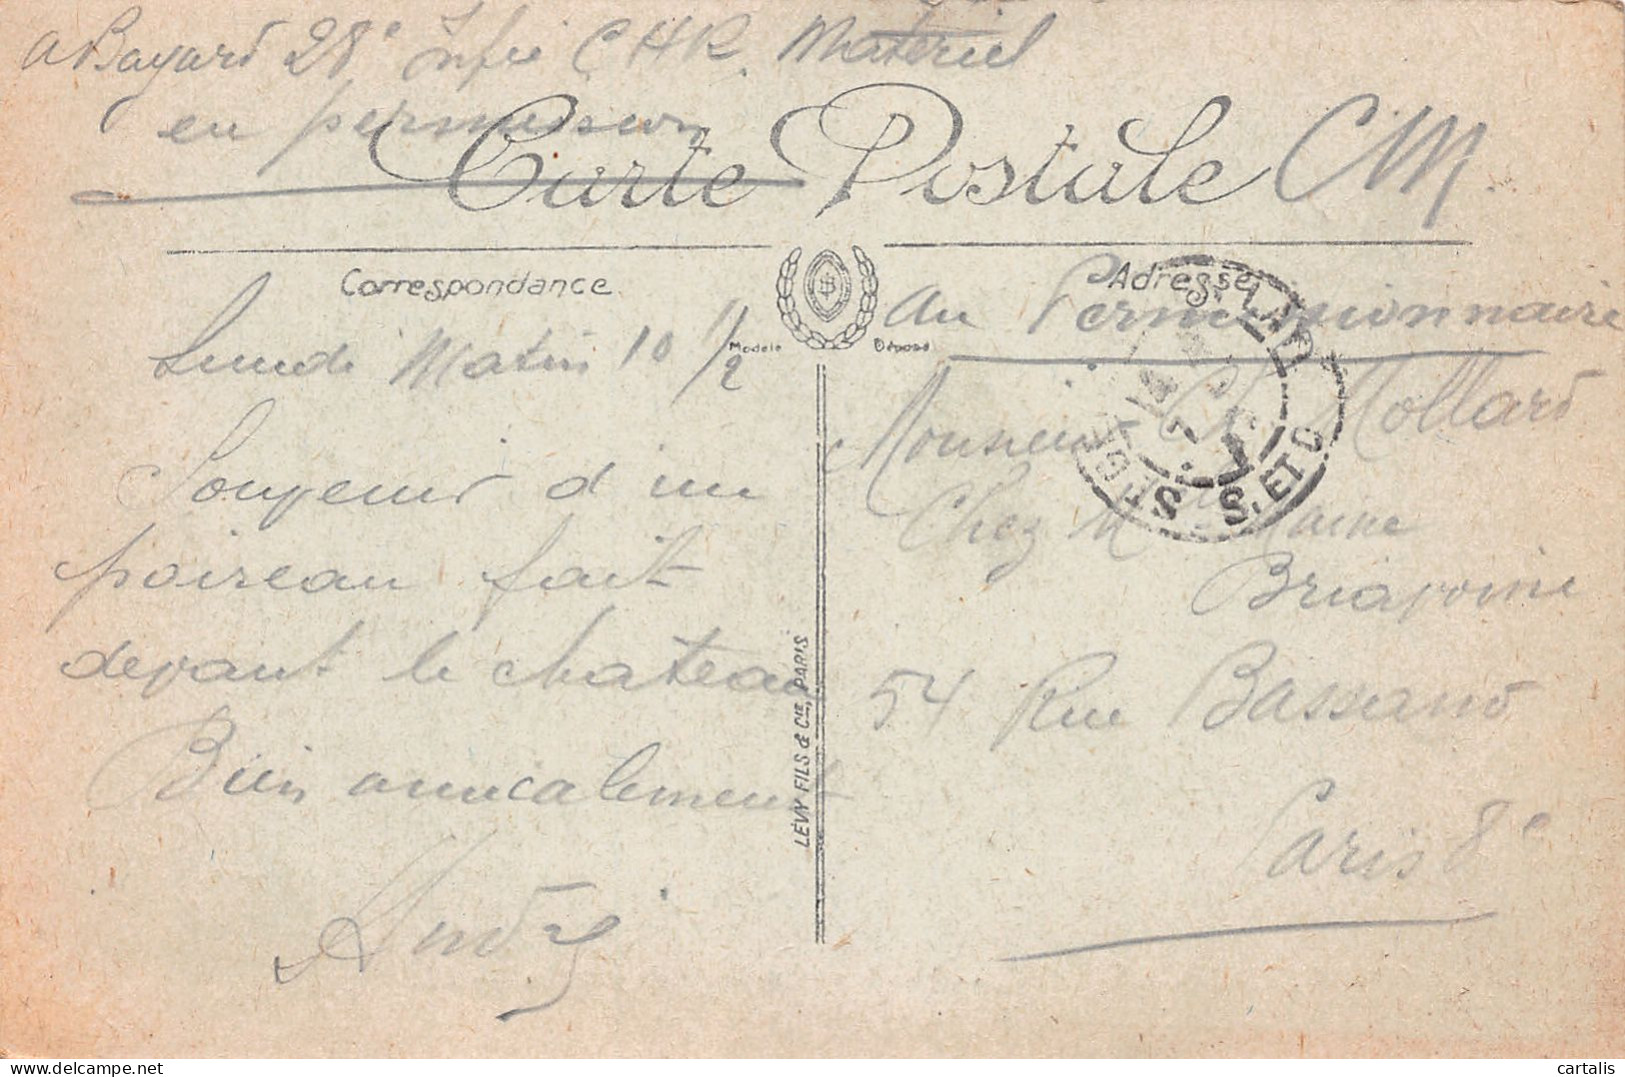 A Bayard 28e Infie CHR. Matériel
en permission
Carte Postale CM
Correspondance
Lundi Matin 10 1/2
Souvenir d'un
poireau fait
devant le chateau
Bien amicalement
André
Modèle Déposé
LÉVY FILS & CIE, PARIS
Adresse
Au Permissionnaire
Monsieur Ch Mollard
Chez M
54 Rue Bassano
Paris 8e
S. ET O